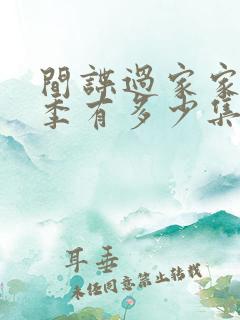 間諜過家家
季有多少集
耳垂
未经同意禁止转载